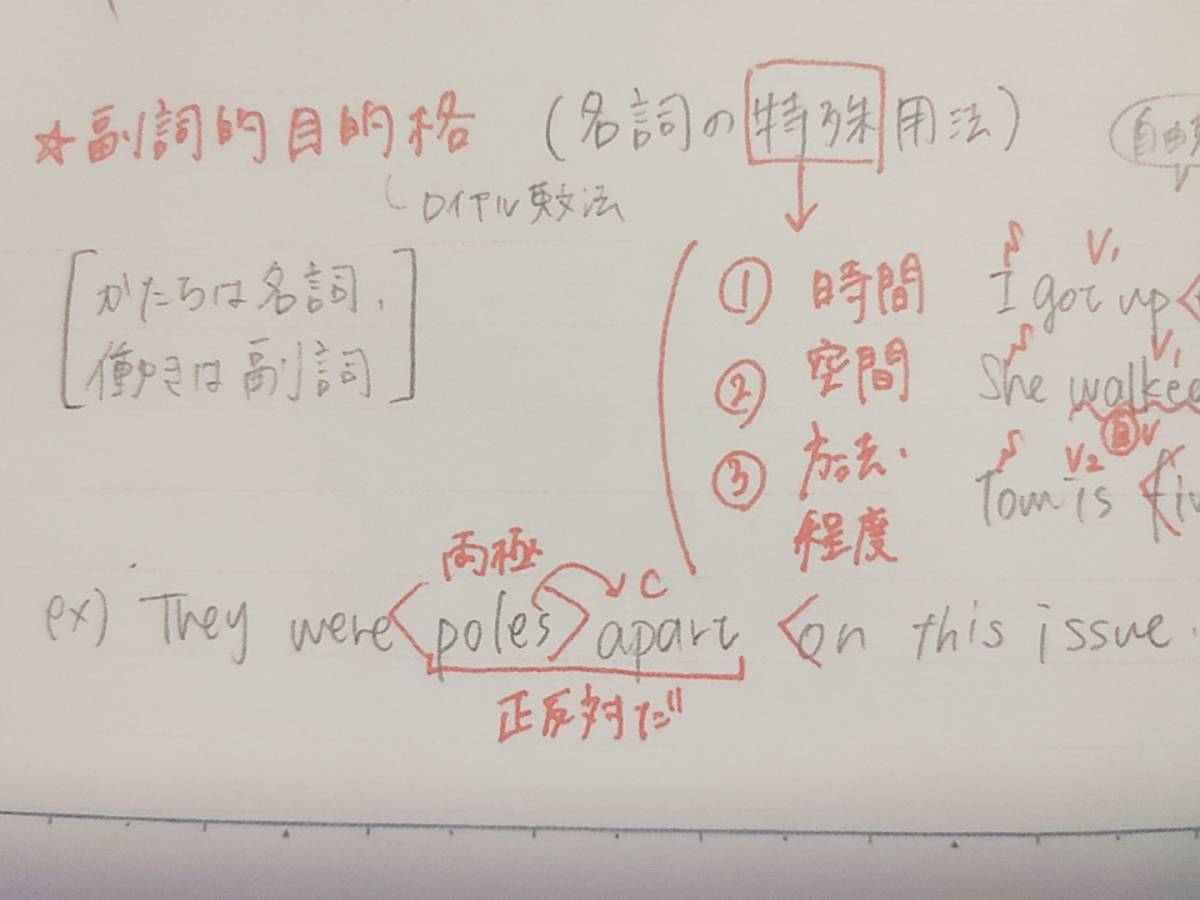 ☆副詞的目的格 (名詞の特殊用法)
ロイヤル英文法
かたちは名詞、
働きは副詞
① 時間 I got up
S V₁
② 空間 She walked
S V₁
自V
③ 方法・
程度
Tom is
S V₂
両極
C
ex) They were <poles> apart <on this issue.
正反対だ